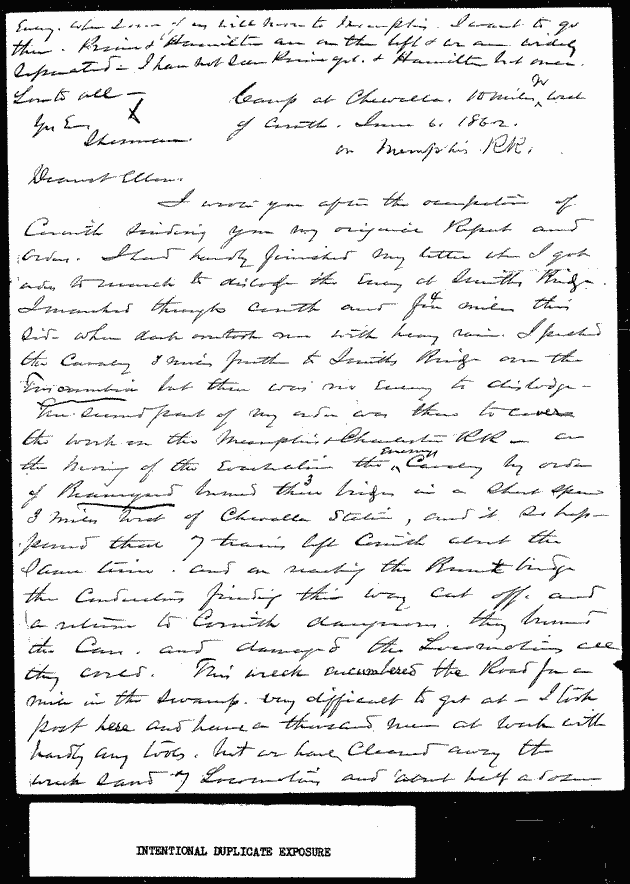 Enemy. When some of us will move to Memphis. I want to go
there. Prime & Hamilton are on the left & we are widely
separated - I have not seen Prime yet. & Hamilton but once.
Love to all -
Yrs Ever
Sherman
X
Camp at Chewalla. 10 miles N W West
of Corinth. June 6. 1862.
on Memphis RR.
Dearest Ellen.
I wrote you after the occupation of
Corinth sending you my original Report and
orders. I had hardly finished my letter when I got
orders to march to dislodge the Enemy at Smiths Bridge.
I marched through Corinth and four miles this
side when dark overtook me with heavy rain. I pushed
the Cavalry 8 miles further to Smiths Bridge over the
Tuscumbia but there was no Enemy to dislodge -
The second part of my order was then to cover
the work on the Memphis & Charleston RR - on
the Morning of the Evacuation the Enemys Cavalry by order
of Beauregard burned the 3 bridges in a short space
3 miles West of Chewalla Station, and it so hap-
pened that 7 trains left Corinth about the
same time. and on reaching the Burnt bridge
the Conductors finding this way cut off. and
a return to Corinth dangerous. they burned
the Cars. and damaged the Locomotives all
they could. This wreck encumbered the Road for a
mile in the swamp. very difficult to get at - I took
post here and have a thousand men at work with
hardly any tools. but we have cleared away the
wreck saved 7 Locomotives and about half a dozen
INTENTIONAL DUPLICATE EXPOSURE